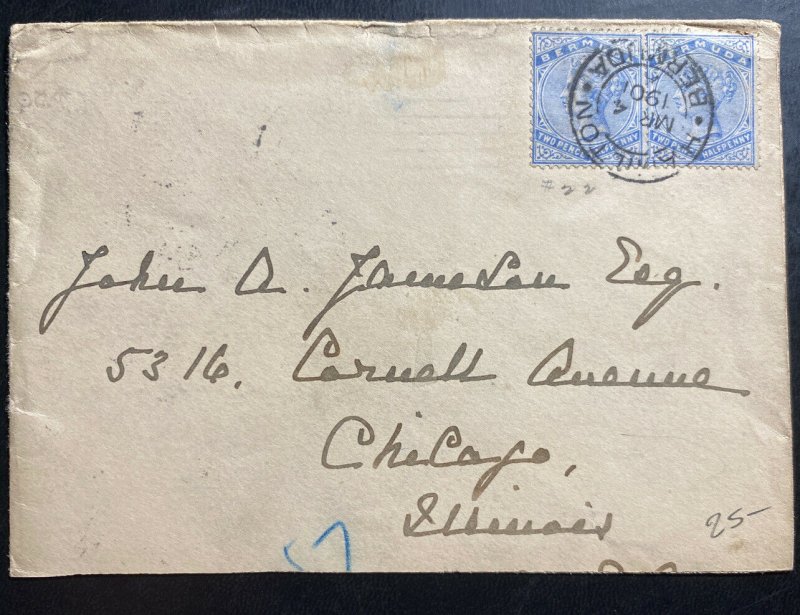 BERMUDA BERMUDA
TWO PENCE HALFPENNY TWO PENCE HALFPENNY
HAMILTON • BERMUDA
MR 4
1901
# 22
John A. Jameson Esq.
5316. Cornell Avenue
Chicago,
Illinois
25-